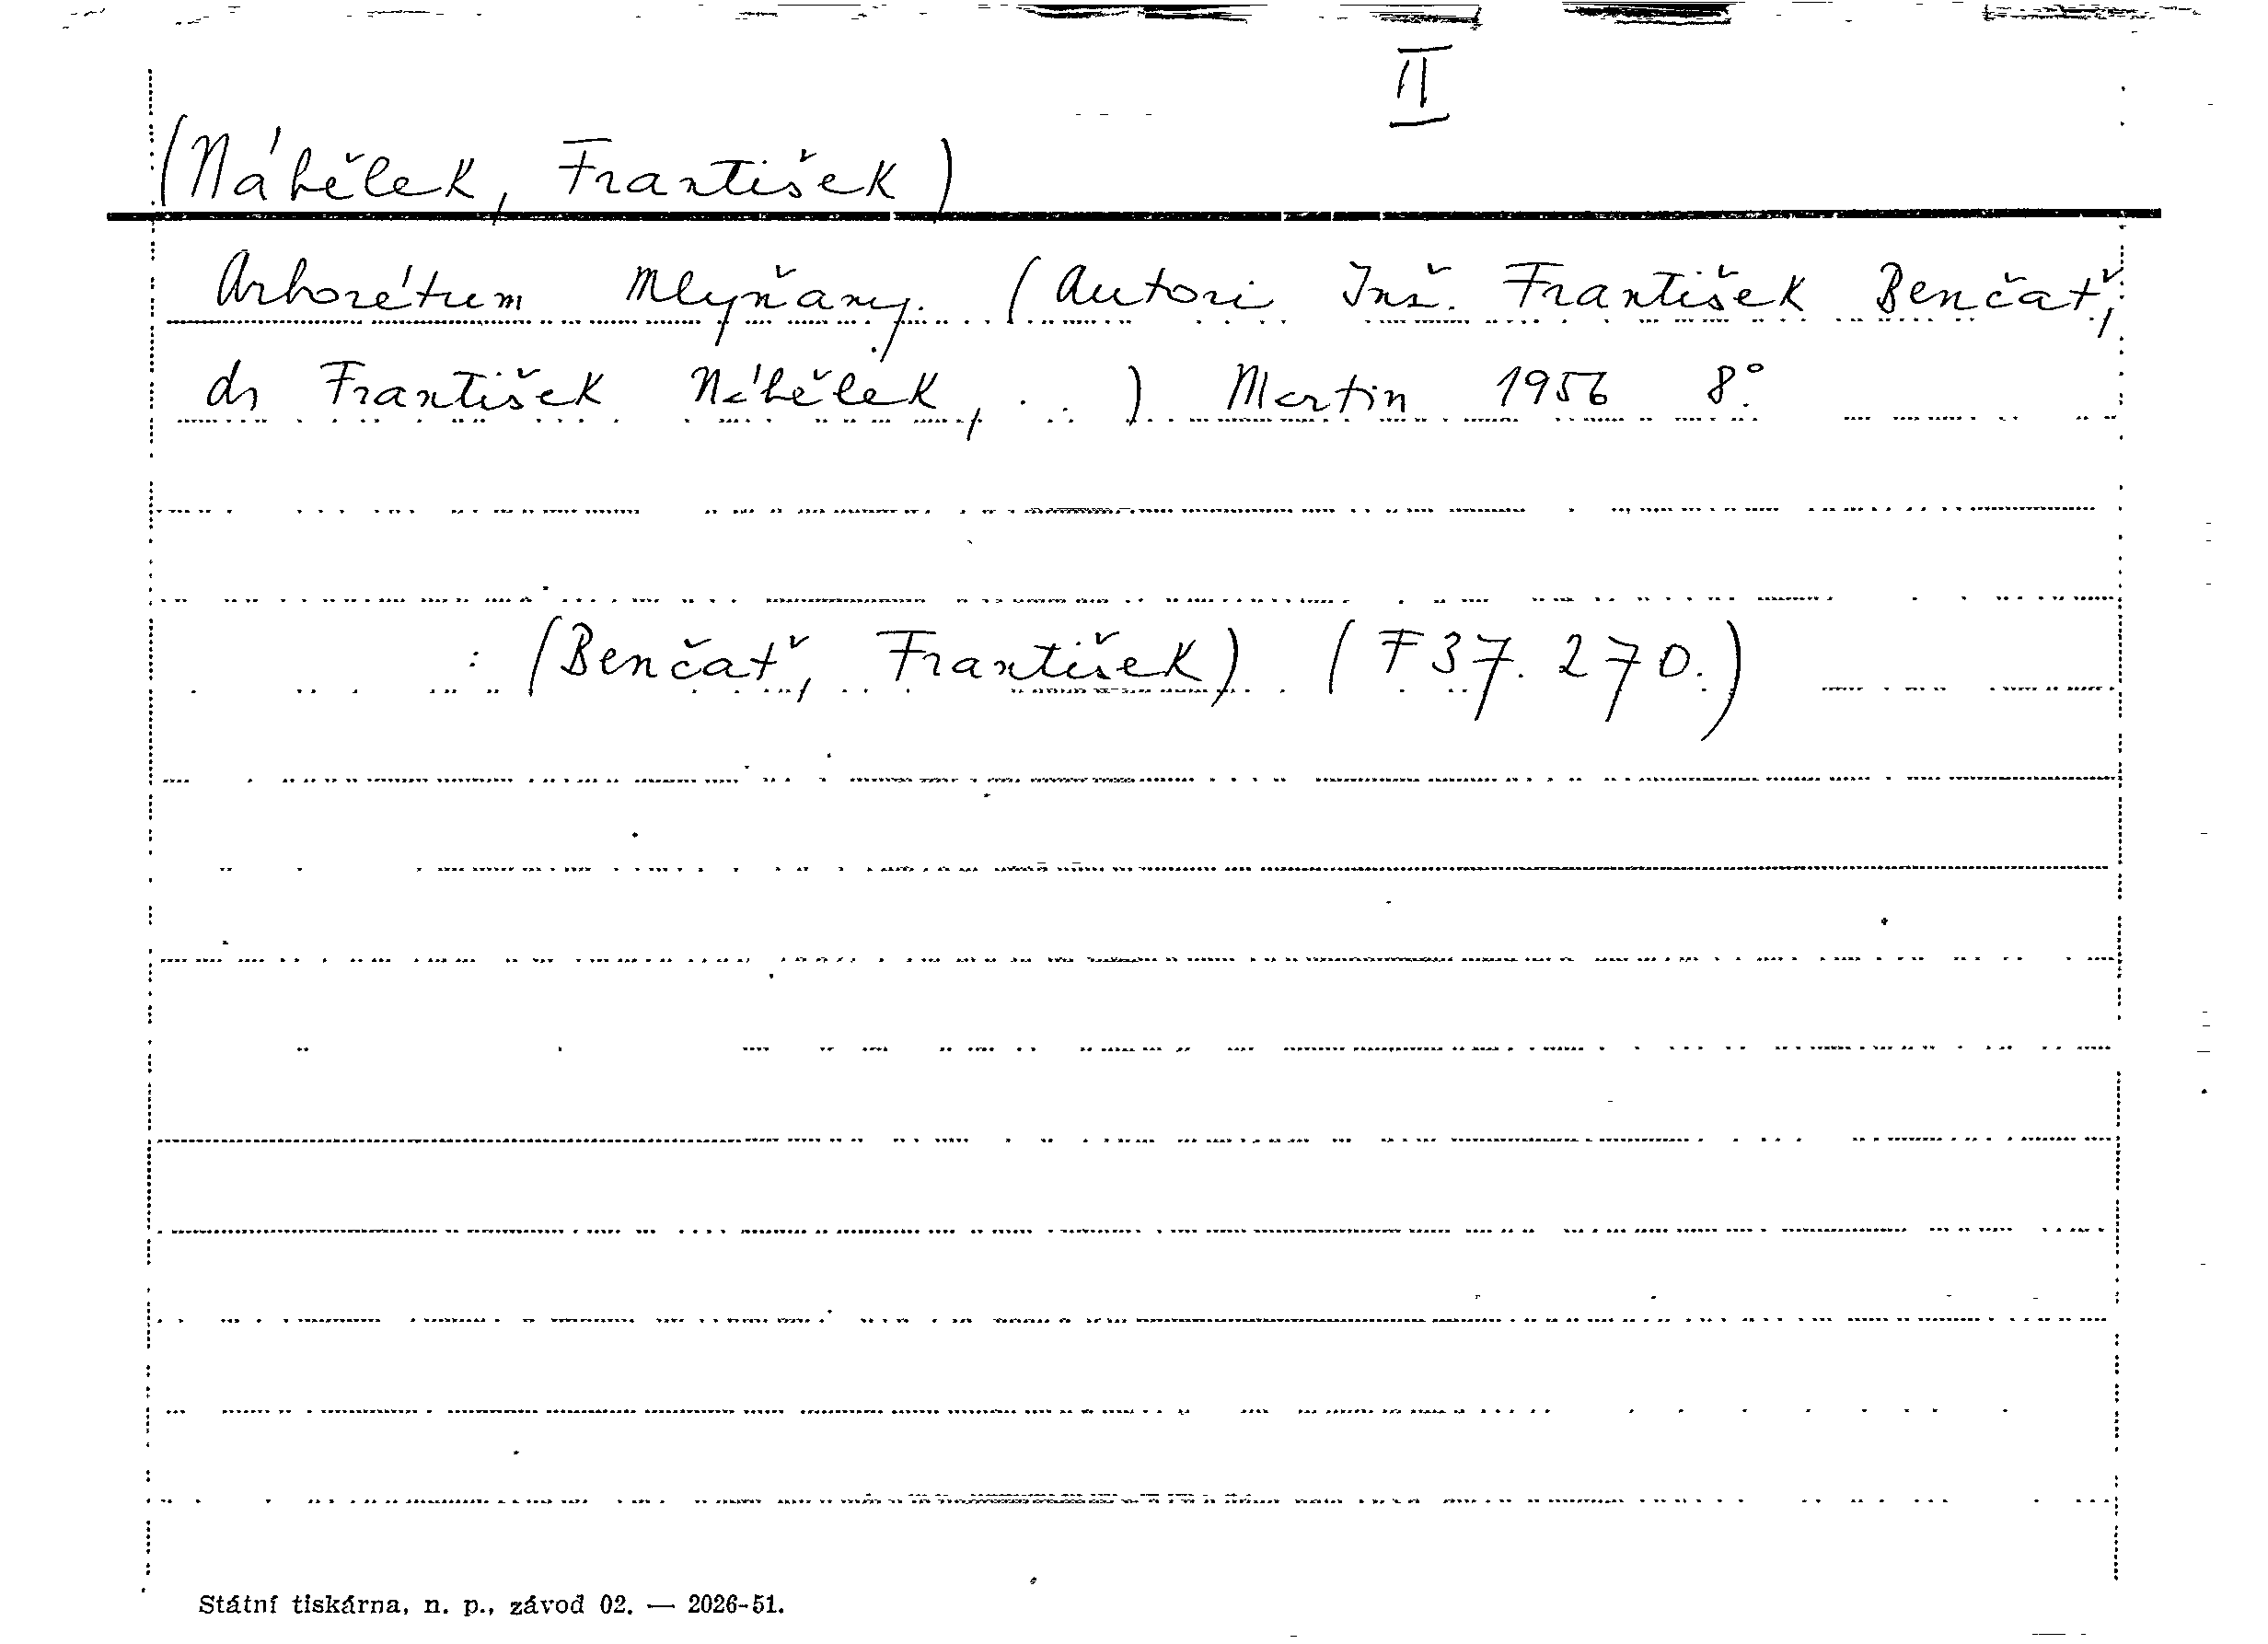 II
(Nábělek, František)
Arborétum Mlyňany. (Autori Inž. František Benčať,
dr František Nábělek, ...) Martin 1956 8°.
: (Benčať, František) (F 37.270.)
Státní tiskárna, n. p., závod 02. — 2026-51.